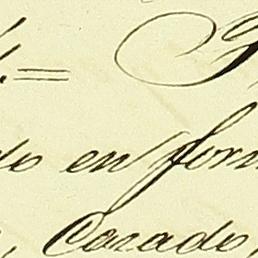 do en form
, Casado,